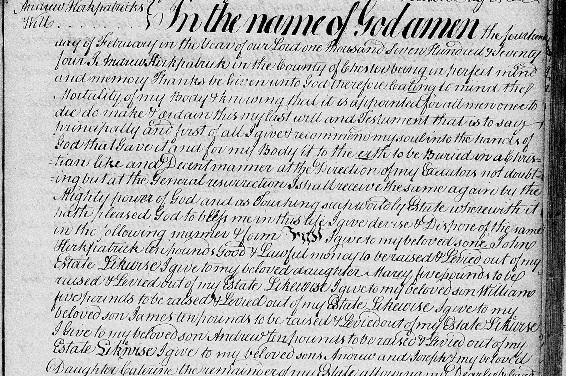 Andrew Kirkpatricks
Will
In the name of God amen the fourteenth
day of February in the Year of our Lord one thousand Seven Hundred & Seventy
four I Andrew Kirkpatrick in the County of Chester being in perfect mind
and memory Thanks be Given unto God therefore Calling to mind the
Mortality of my Body & knowing that it is appointed for all men once to
die do make & ordain this my last will and Testament that is to say
principally and first of all I give & recommend my soul into the hands of
God that Gave it and for my Body it to the earth to be Buried in a Chris-
tian like and Decent manner at the Direction of my Executors not doubt-
ing but at the General resurrection I shall receive the same again by the
Mighty power of God and as Touching such worldly Estate wherewith it
hath pleased God to bless me in this life I give devise & Dispose of the same
in the following manner & form First I give to my beloved son John
Kirkpatrick ten pounds Good & Lawful money to be raised & Levied out of my
Estate Likewise I give to my beloved daughter Marcy five pounds to be
raised & Levied out of my Estate Likewise I give to my beloved son William
five pounds to be raised & Levied out of my Estate Likewise I give to my
beloved son James ten pounds to be raised & Levied out of my Estate Likewise
I Give to my beloved son Andrew ten pounds to be raised & Levied out of my
Estate Likewise I give to my beloved sons Andrew and Joseph & my beloved
Daughter Caterine the remainder of my Estate